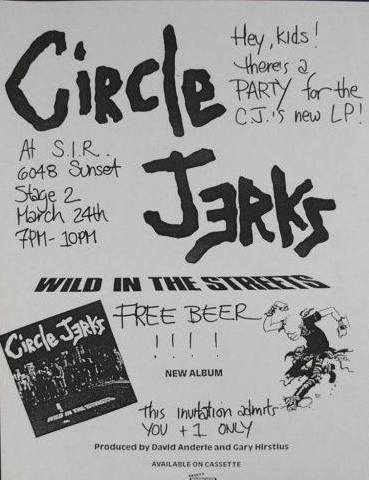 Circle
Jerks
Hey, kids!
there's a
PARTY for the
C.J.'s new LP!
At S.I.R.
6048 Sunset
Stage 2
March 24th
7PM - 10PM
WILD IN THE STREETS
Circle Jerks
WILD IN THE STREETS
FREE BEER
! ! ! !
NEW ALBUM
This invitation admits
YOU + 1 ONLY
Produced by David Anderle and Gary Hirstius
AVAILABLE ON CASSETTE